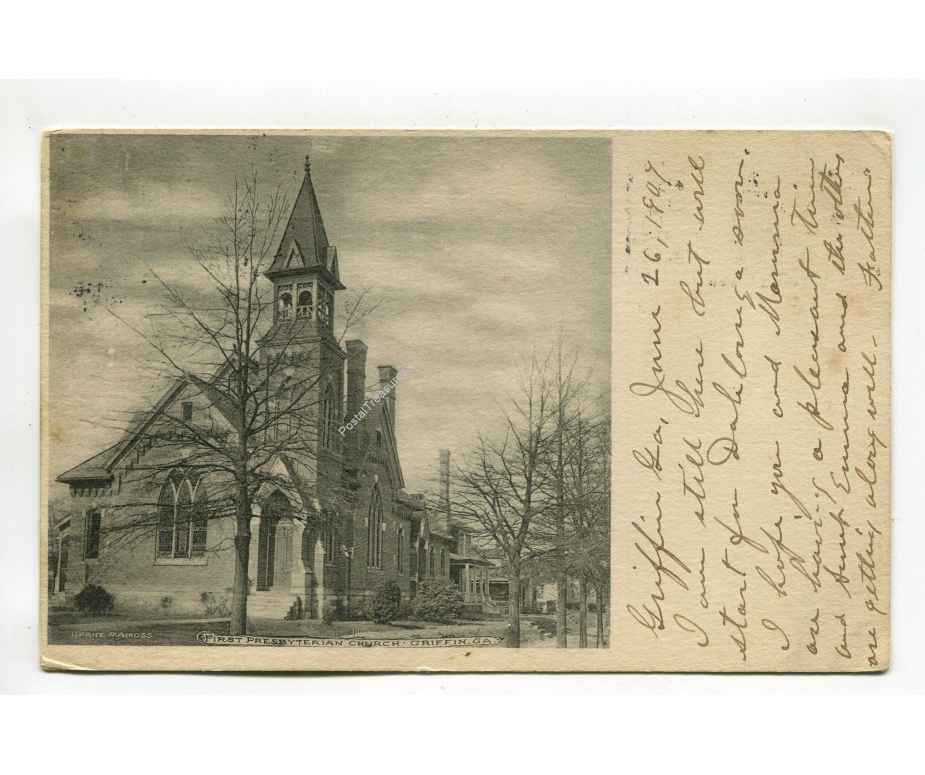 Griffin Ga, June 26, 1907
I am still here but will
start for Dahlonega soon.
I hope you and Mamma
are having a pleasant time
and Aunt Emma and the others
are getting along well- Father
FIRST PRESBYTERIAN CHURCH. GRIFFIN, GA.
PostalTreasures